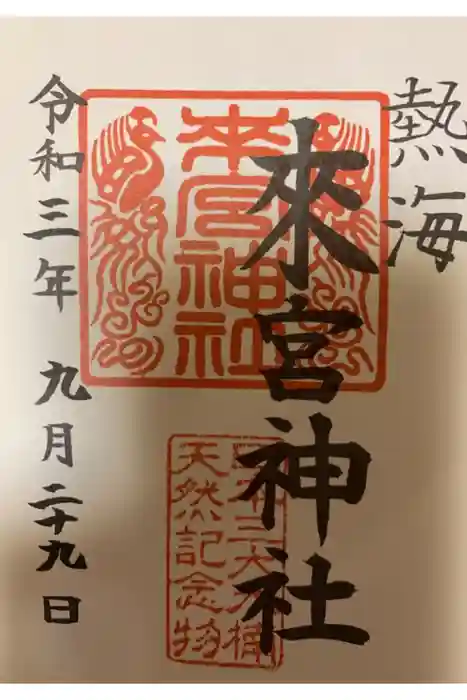 熱海
來宮神社
令和三年 九月二十九日
来宮神社
日本三大大楠
天然記念物